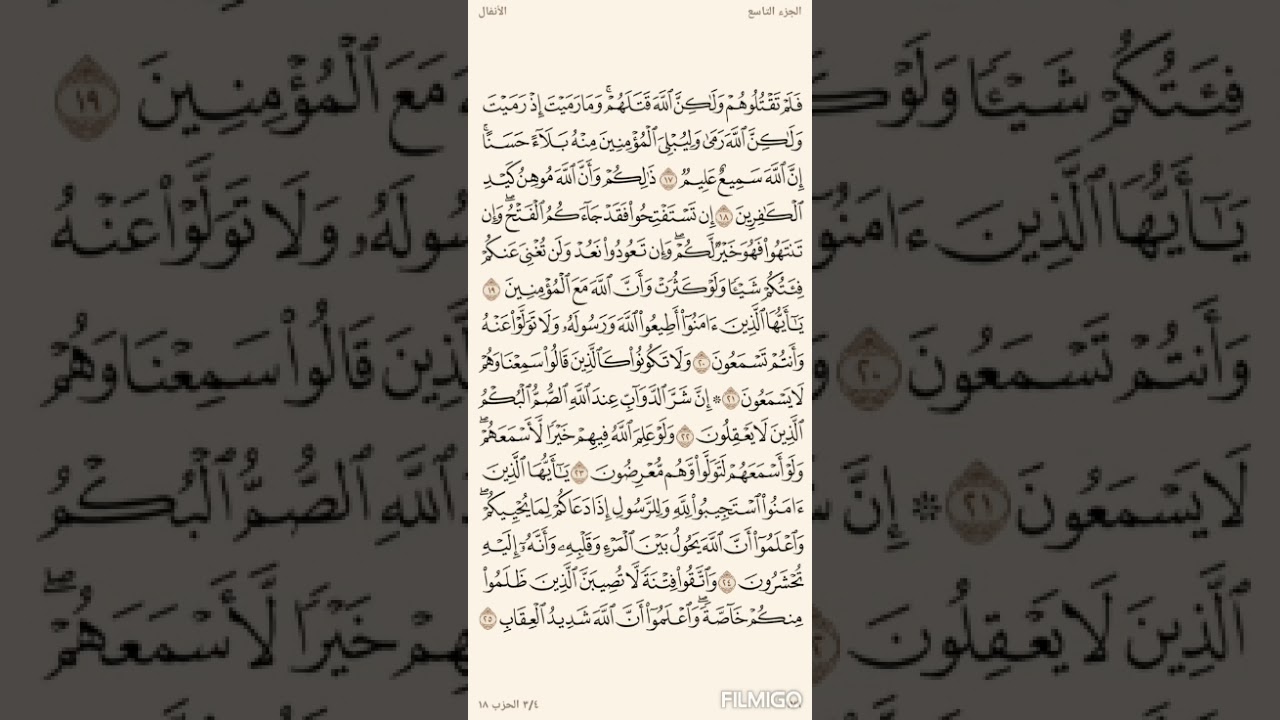 الجزء التاسع
الأنفال
فَلَمْ تَقْتُلُوهُمْ وَلَٰكِنَّ ٱللَّهَ قَتَلَهُمْ ۚ وَمَا رَمَيْتَ إِذْ رَمَيْتَ
وَلَٰكِنَّ ٱللَّهَ رَمَىٰ وَلِيُبْلِىَ ٱلْمُؤْمِنِينَ مِنْهُ بَلَآءً حَسَنًا ۚ
إِنَّ ٱللَّهَ سَمِيعٌ عَلِيمٌ ١٧ ذَٰلِكُمْ وَأَنَّ ٱللَّهَ مُوهِنُ كَيْدِ
ٱلْكَٰفِرِينَ ١٨ إِن تَسْتَفْتِحُوا۟ فَقَدْ جَآءَكُمُ ٱلْفَتْحُ ۖ وَإِن
تَنتَهُوا۟ فَهُوَ خَيْرٌ لَّكُمْ ۖ وَإِن تَعُودُوا۟ نَعُدْ وَلَن تُغْنِىَ عَنكُمْ
فِئَتُكُمْ شَيْـًٔا وَلَوْ كَثُرَتْ وَأَنَّ ٱللَّهَ مَعَ ٱلْمُؤْمِنِينَ ١٩
يَٰٓأَيُّهَا ٱلَّذِينَ ءَامَنُوٓا۟ أَطِيعُوا۟ ٱللَّهَ وَرَسُولَهُۥ وَلَا تَوَلَّوْا۟ عَنْهُ
وَأَنتُمْ تَسْمَعُونَ ٢٠ وَلَا تَكُونُوا۟ كَٱلَّذِينَ قَالُوا۟ سَمِعْنَا وَهُمْ
لَا يَسْمَعُونَ ٢١ ۞ إِنَّ شَرَّ ٱلدَّوَآبِّ عِندَ ٱللَّهِ ٱلصُّمُّ ٱلْبُكْمُ
ٱلَّذِينَ لَا يَعْقِلُونَ ٢٢ وَلَوْ عَلِمَ ٱللَّهُ فِيهِمْ خَيْرًا لَّأَسْمَعَهُمْ ۖ
وَلَوْ أَسْمَعَهُمْ لَتَوَلَّوا۟ وَّهُم مُّعْرِضُونَ ٢٣ يَٰٓأَيُّهَا ٱلَّذِينَ
ءَامَنُوا۟ ٱسْتَجِيبُوا۟ لِلَّهِ وَلِلرَّسُولِ إِذَا دَعَاكُمْ لِمَا يُحْيِيكُمْ ۖ
وَٱعْلَمُوٓا۟ أَنَّ ٱللَّهَ يَحُولُ بَيْنَ ٱلْمَرْءِ وَقَلْبِهِۦ وَأَنَّهُۥٓ إِلَيْهِ
تُحْشَرُونَ ٢٤ وَٱتَّقُوا۟ فِتْنَةً لَّا تُصِيبَنَّ ٱلَّذِينَ ظَلَمُوا۟
مِنكُمْ خَآصَّةً ۖ وَٱعْلَمُوٓا۟ أَنَّ ٱللَّهَ شَدِيدُ ٱلْعِقَابِ ٢٥
٣/٤ الحزب ١٨
FILMIGO